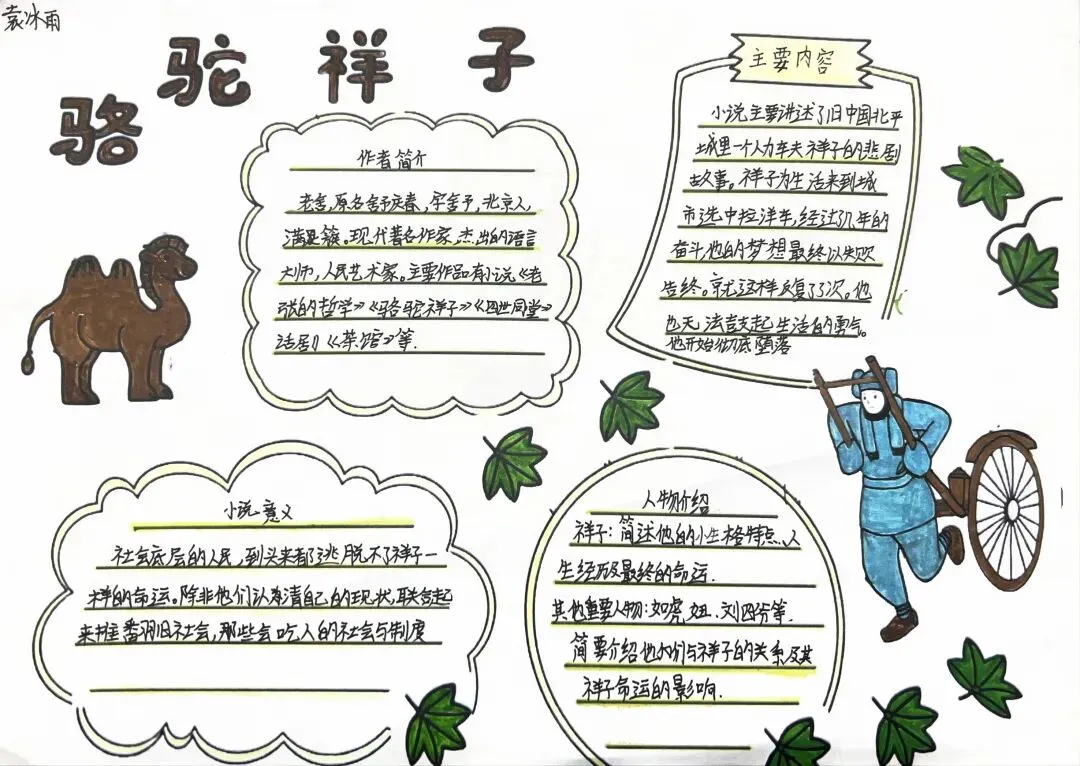 袁冰雨
骆驼祥子
作者简介
老舍,原名舍予庆春,字舍予,北京人,
满足族。现代著名作家,杰出的语言
大师,人民艺术家。主要作品有小说《老
张的哲学》《骆驼祥子》《四世同堂》
话剧《茶馆》等.
主要内容
小说主要讲述了旧中国北平
城里一个人力车夫祥子的悲剧
故事。祥子为生活来到城
市选中拉洋车,经过几年的
奋斗,他的梦想最终以失败
告终。就这样反复了3次。他
也无法鼓起生活的勇气。
他开始彻底堕落
小说意义
社会底层的人民,到头来都逃脱不了祥子一
样的命运。除非他们认清自己的现状,联合起
来推番羽旧社会,那些会吃人的社会与制度
人物介绍
祥子:简述他的小生格特点、人
生经历及最终的命运.
其他重要人物:如虎妞、刘四爷等.
简要介绍他们与祥子的关系及其
祥子命运的影响.